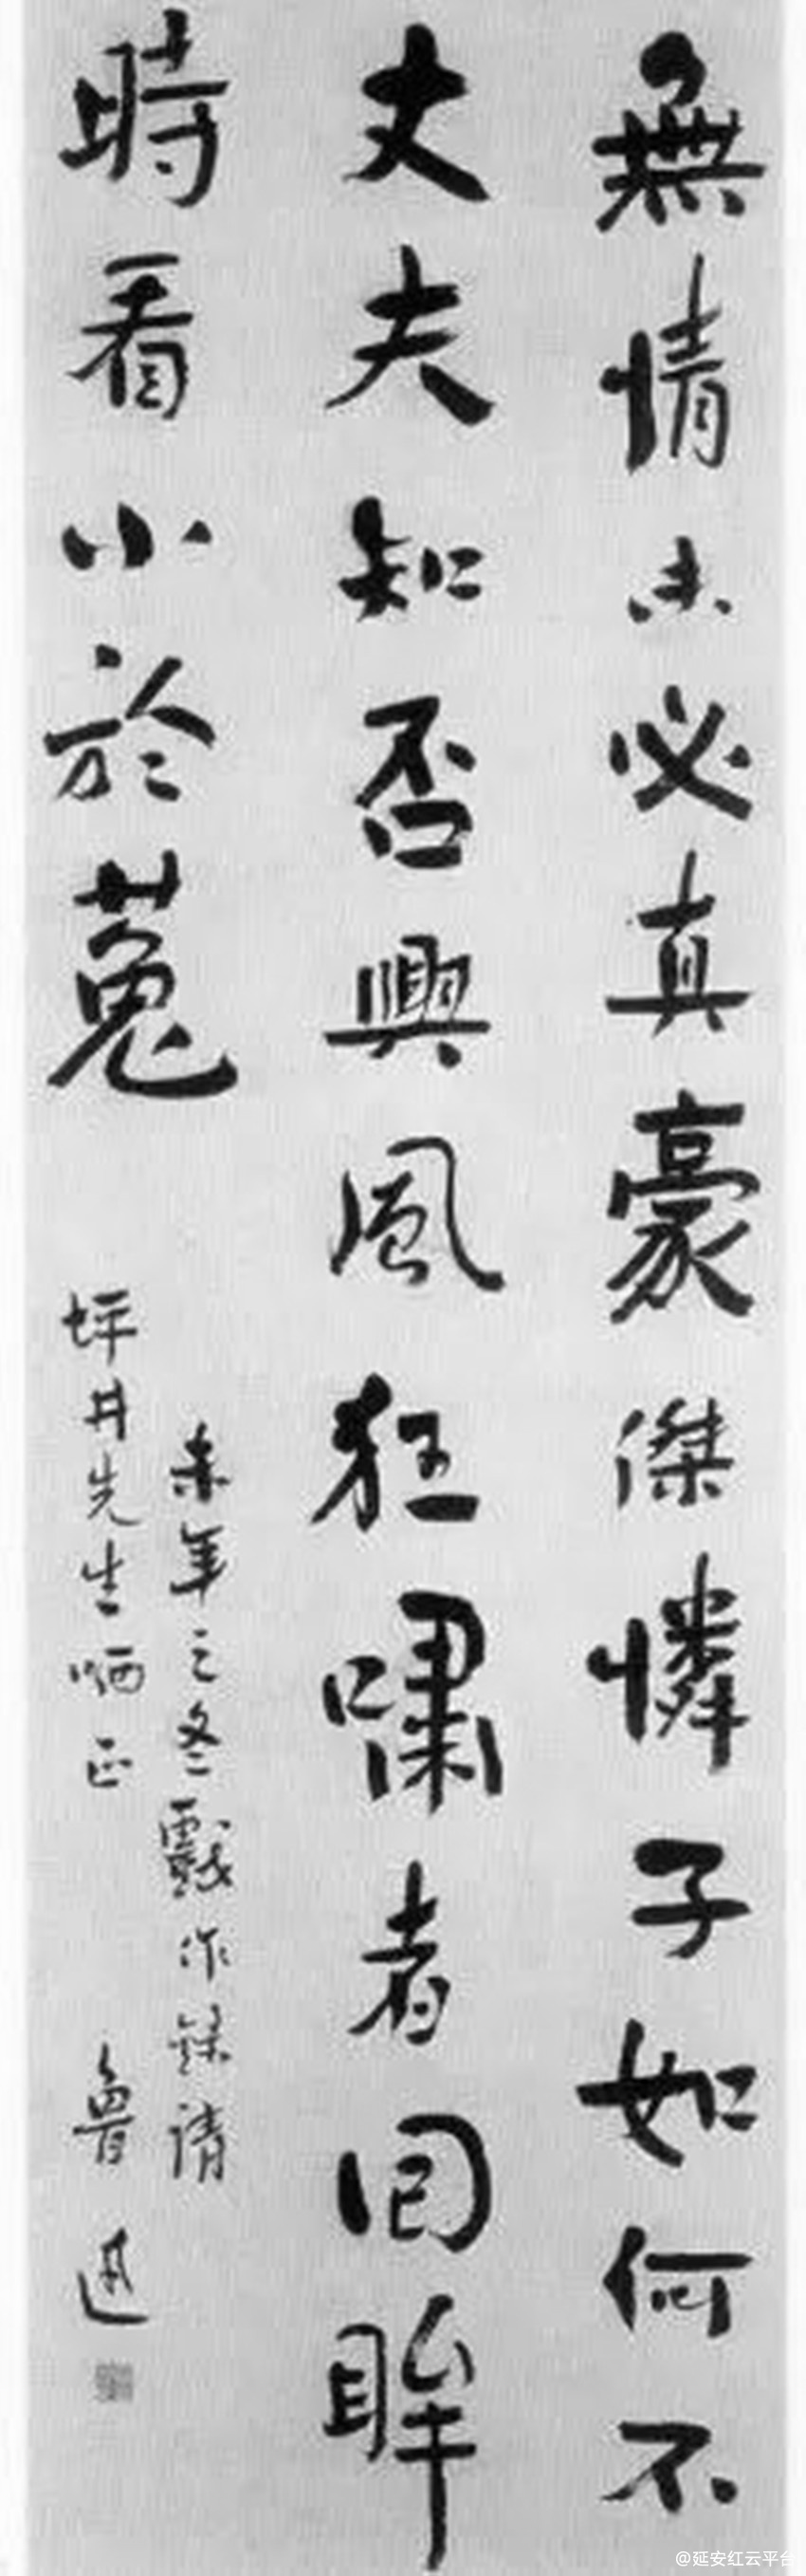 無情未必真豪傑憐子如何不
丈夫知否興風狂嘯者回眸
時看小於菟
未年之冬戲作錄請
坪井先生哂正
魯迅
@延安红云平台